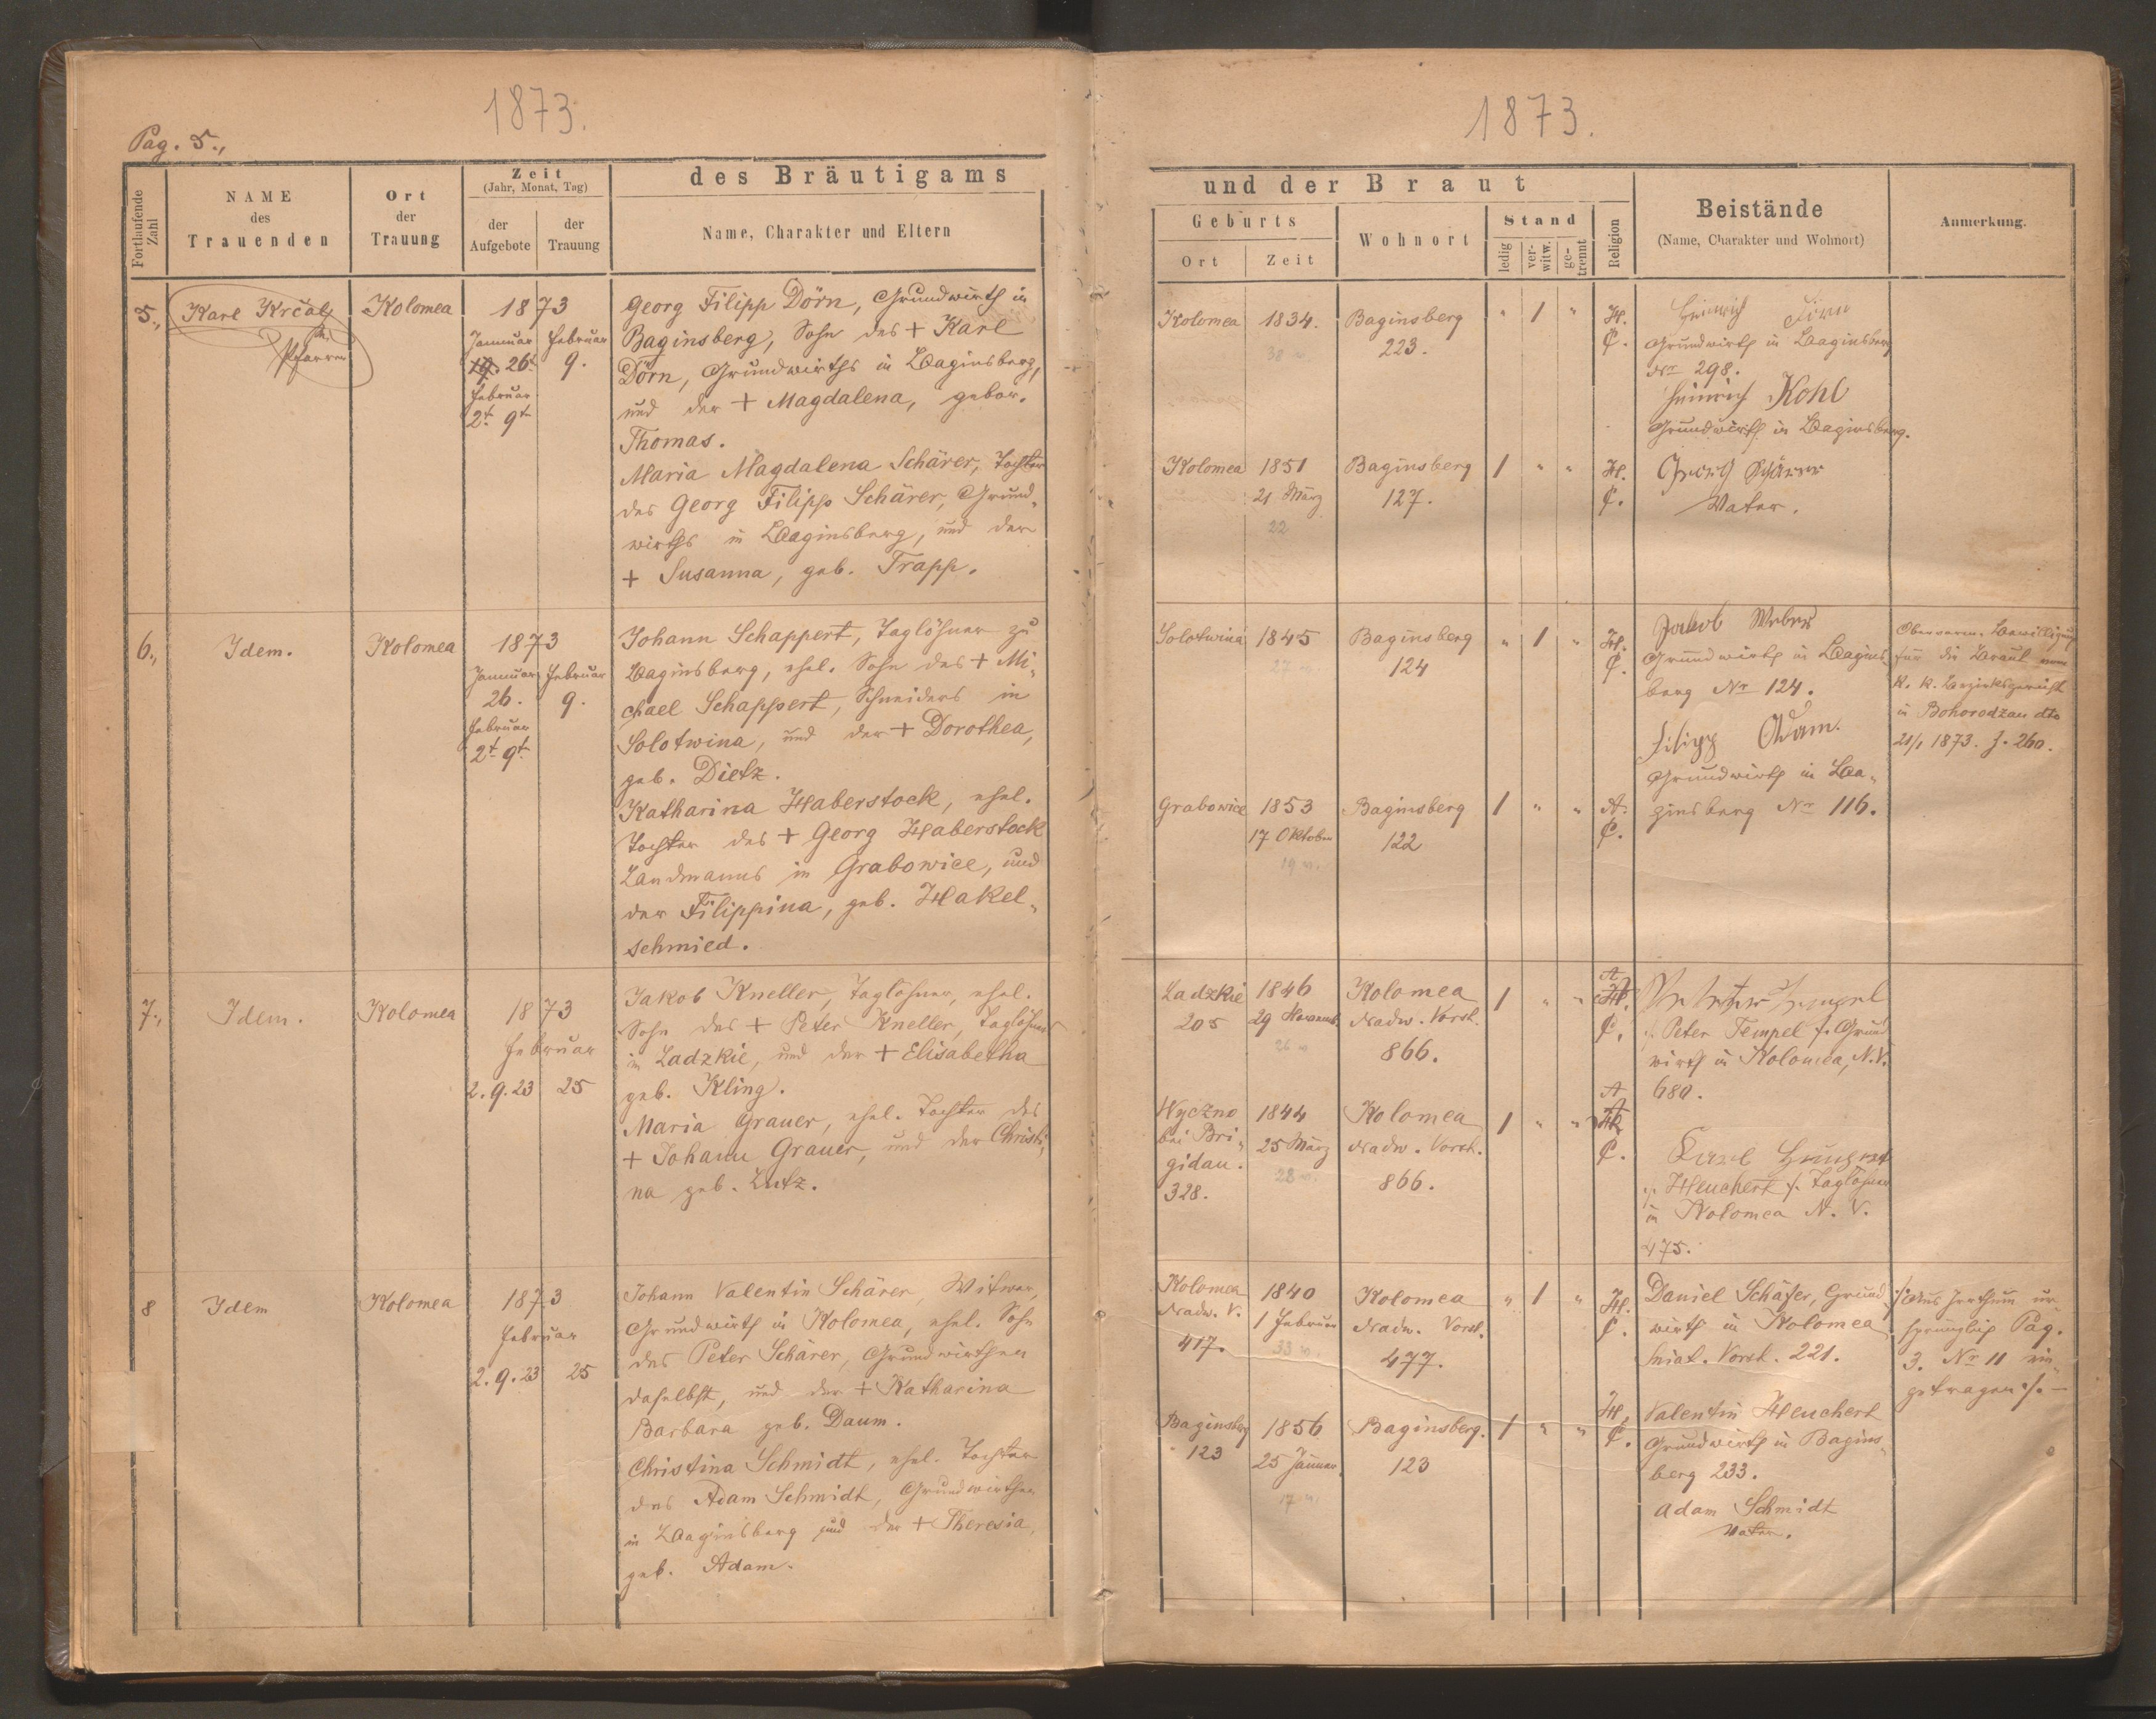 1873.
Pag. 5.,
Fortlaufende Zahl
NAME des Trauenden
Ort der Trauung
Zeit (Jahr, Monat, Tag)
der Aufgebote
der Trauung
des Bräutigams
Name, Charakter und Eltern
5.,
Karl Krčal
Pfarrer
Kolomea
1873
Januar Februar
19. 26t 9.
Februar
2t 9t
Georg Filipp Dörn, Grundwirth in
Baginsberg, Sohn des + Karl
Dörn, Grundwirths in Baginsberg,
und der + Magdalena, gebor.
Thomas.
Maria Magdalena Schärer, Tochter
des Georg Filipp Schärer, Grund-
wirths in Baginsberg, und der
+ Susanna, geb. Trapp.
6.,
Idem.
Kolomea
1873
Januar Februar
26. 9.
Februar
2t 9t
Johann Schappert, Taglöhner zu
Baginsberg, ehel. Sohn des + Mi-
chael Schappert, Schneiders in
Solotwina, und der + Dorothea,
geb. Dietz.
Katharina Haberstock, ehel.
Tochter des + Georg Haberstock
Landmanns in Grabowice, und
der Filippina, geb. Hakel-
schmied.
7.,
Idem.
Kolomea
1873
Februar
2. 9. 23 25
Jakob Kneller, Taglöhner, ehel.
Sohn des + Peter Kneller, Taglöhner
in Ladzkie, und der + Elisabetha
geb. Kling.
Maria Grauer, ehel. Tochter des
+ Johann Grauer, und der Christi-
na geb. Lutz.
8
Idem
Kolomea
1873
Februar
2. 9. 23 25
Johann Valentin Schärer, Witwer,
Grundwirth in Kolomea, ehel. Sohn
des Peter Schärer, Grundwirthen
daselbst, und der + Katharina
Barbara geb. Daum.
Christina Schmidt, ehel. Tochter
des Adam Schmidt, Grundwirthen
in Baginsberg und der + Theresia,
geb. Adam.
1873.
und der Braut
Geburts
Ort
Zeit
Wohnort
Stand
ledig
verwitw.
getrennt
Religion
Beistände
(Name, Charakter und Wohnort)
Anmerkung.
Kolomea 1834. Baginsberg " 1 " H.
38 223. C.
Heinrich Dörn
Grundwirth in Baginsberg
Nr 298.
Heinrich Kohl
Grundwirth in Baginsberg.
Kolomea 1851 Baginsberg 1 " " H.
21 März 127. C.
22
Georg Schärer
Vater.
Solotwina 1845 Baginsberg " 1 " H.
27 124 C.
Jakob Weber
Grundwirth in Bagins-
berg Nr 124.
Filipp Adam.
Grundwirth in Ba-
ginsberg Nr 116.
Obervorm. Bewilligung
für die Braut vom
k. k. Bezirksgericht
in Bohorodzan dto
21/1 1873. Z. 260.
Grabowice 1853 Baginsberg 1 " " A.
17 Oktober 122 C.
19
Ladzkie 1846 Kolomea 1 " " A H.
205 29 Novemb. Nadw. Vorst. C.
26 866.
Peter Tempel
/. Peter Tempel /. Grund
wirth in Kolomea, N.V.
680.
Wyczno 1844 Kolomea 1 " " A H.
bei Bri- 25 März Nadw. Vorst. C.
gidau. 28 866.
328.
Karl Heuchert
/. Heuchert /. Taglöhner
in Kolomea N. V.
475.
Kolomea 1840 Kolomea " 1 " H.
Nadw. V. 1 Februar Nadw. Vorst. C.
417. 33 477.
Daniel Schäfer, Grund
wirth in Kolomea
Sniat. Vorst. 221.
/: Aus Irrthum ur-
sprünglich Pag.
3. Nr 11 ein-
getragen :/. —
Baginsberg 1856 Baginsberg. 1 " " H.
123 25 Januar. 123 C.
17
Valentin Heuchert
Grundwirth in Bagins-
berg 233.
Adam Schmidt
Vater.